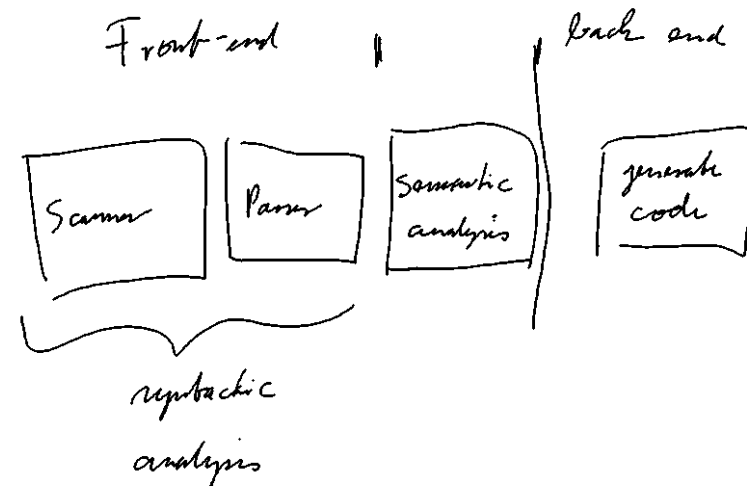 Front-end
back end
Scanner
Parser
Semantic
analysis
generate
code
syntactic
analysis